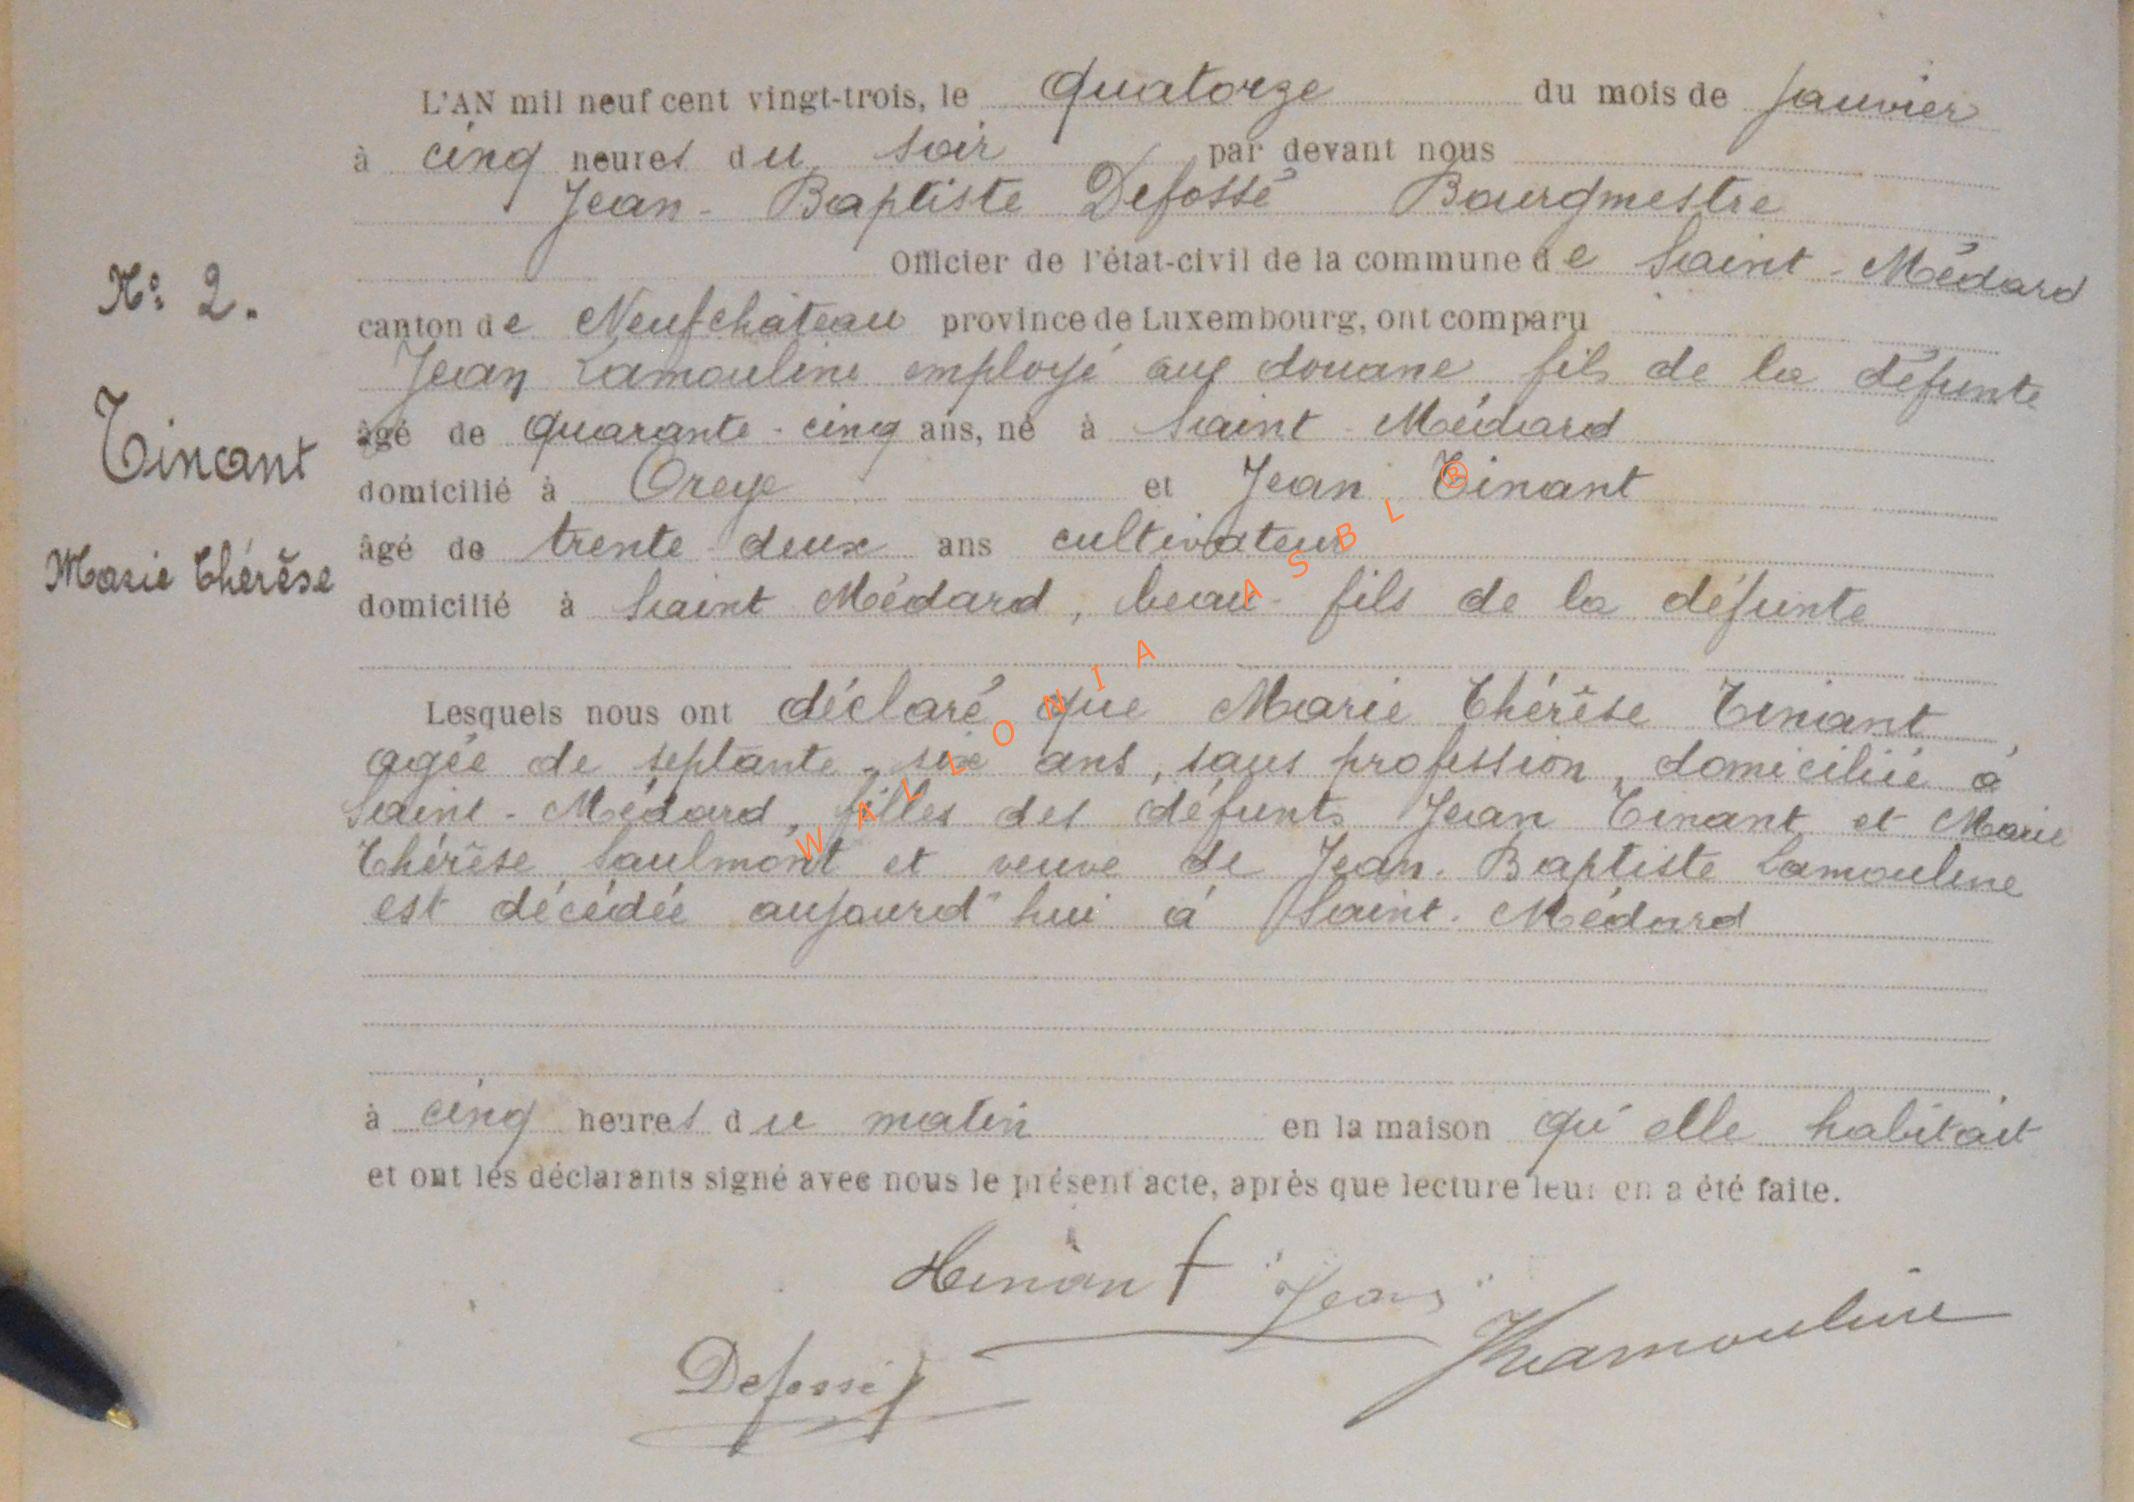 L'AN mil neuf cent vingt-trois, le quatorze du mois de Janvier
à cinq heures du soir par devant nous
Jean-Baptiste Defossé Bourgmestre
Officier de l'état-civil de la commune de Saint-Médard
N° 2.
canton de Neufchâteau province de Luxembourg, ont comparu
Jean Lamouline employé aux douane fils de la défunte
Tinant
âgé de quarante-cinq ans, né à Saint-Médard
domicilié à Oreye et Jean Tinant
âgé de trente-deux ans cultivateur
Marie Thérèse
domicilié à Saint Médard, beau-fils de la défunte
Lesquels nous ont déclaré que Marie Thérèse Tinant
agée de septante-six ans, sans profession, domiciliée à
Saint-Médard, filles des défunts Jean Tinant et Marie
Thérèse Saulmont et veuve de Jean-Baptiste Lamouline
est décédée aujourd'hui à Saint-Médard
à cinq heures du matin en la maison qu'elle habitait
et ont les déclarants signé avec nous le présent acte, après que lecture leur en a été faite.
"Jean"
Defossé
Lamouline
WALLONIA ASBL ®